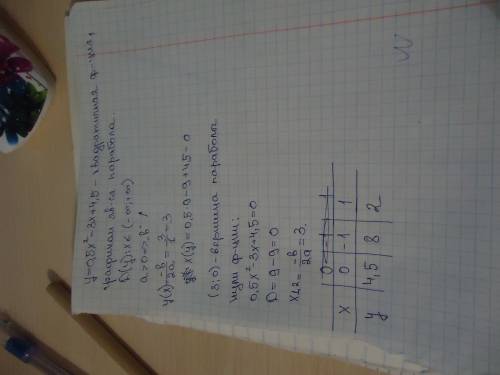 y=0,5x²-3x+4,5 - квадратичная ф-ция,
графиком яв-ся парабола.
D(y): x∈(-∞;+∞)
a>0=>, в↑
y(в)=-b/2a=3/1=3
x(y)=0,5·9-9+4,5=0
(3;0)-вершина параболы
Нули ф-ции:
0,5x²-3x+4,5=0
D=9-9=0
x1,2=-b/2a=3.
0 -1 1
x 0 -1 1
y 4,5 8 2